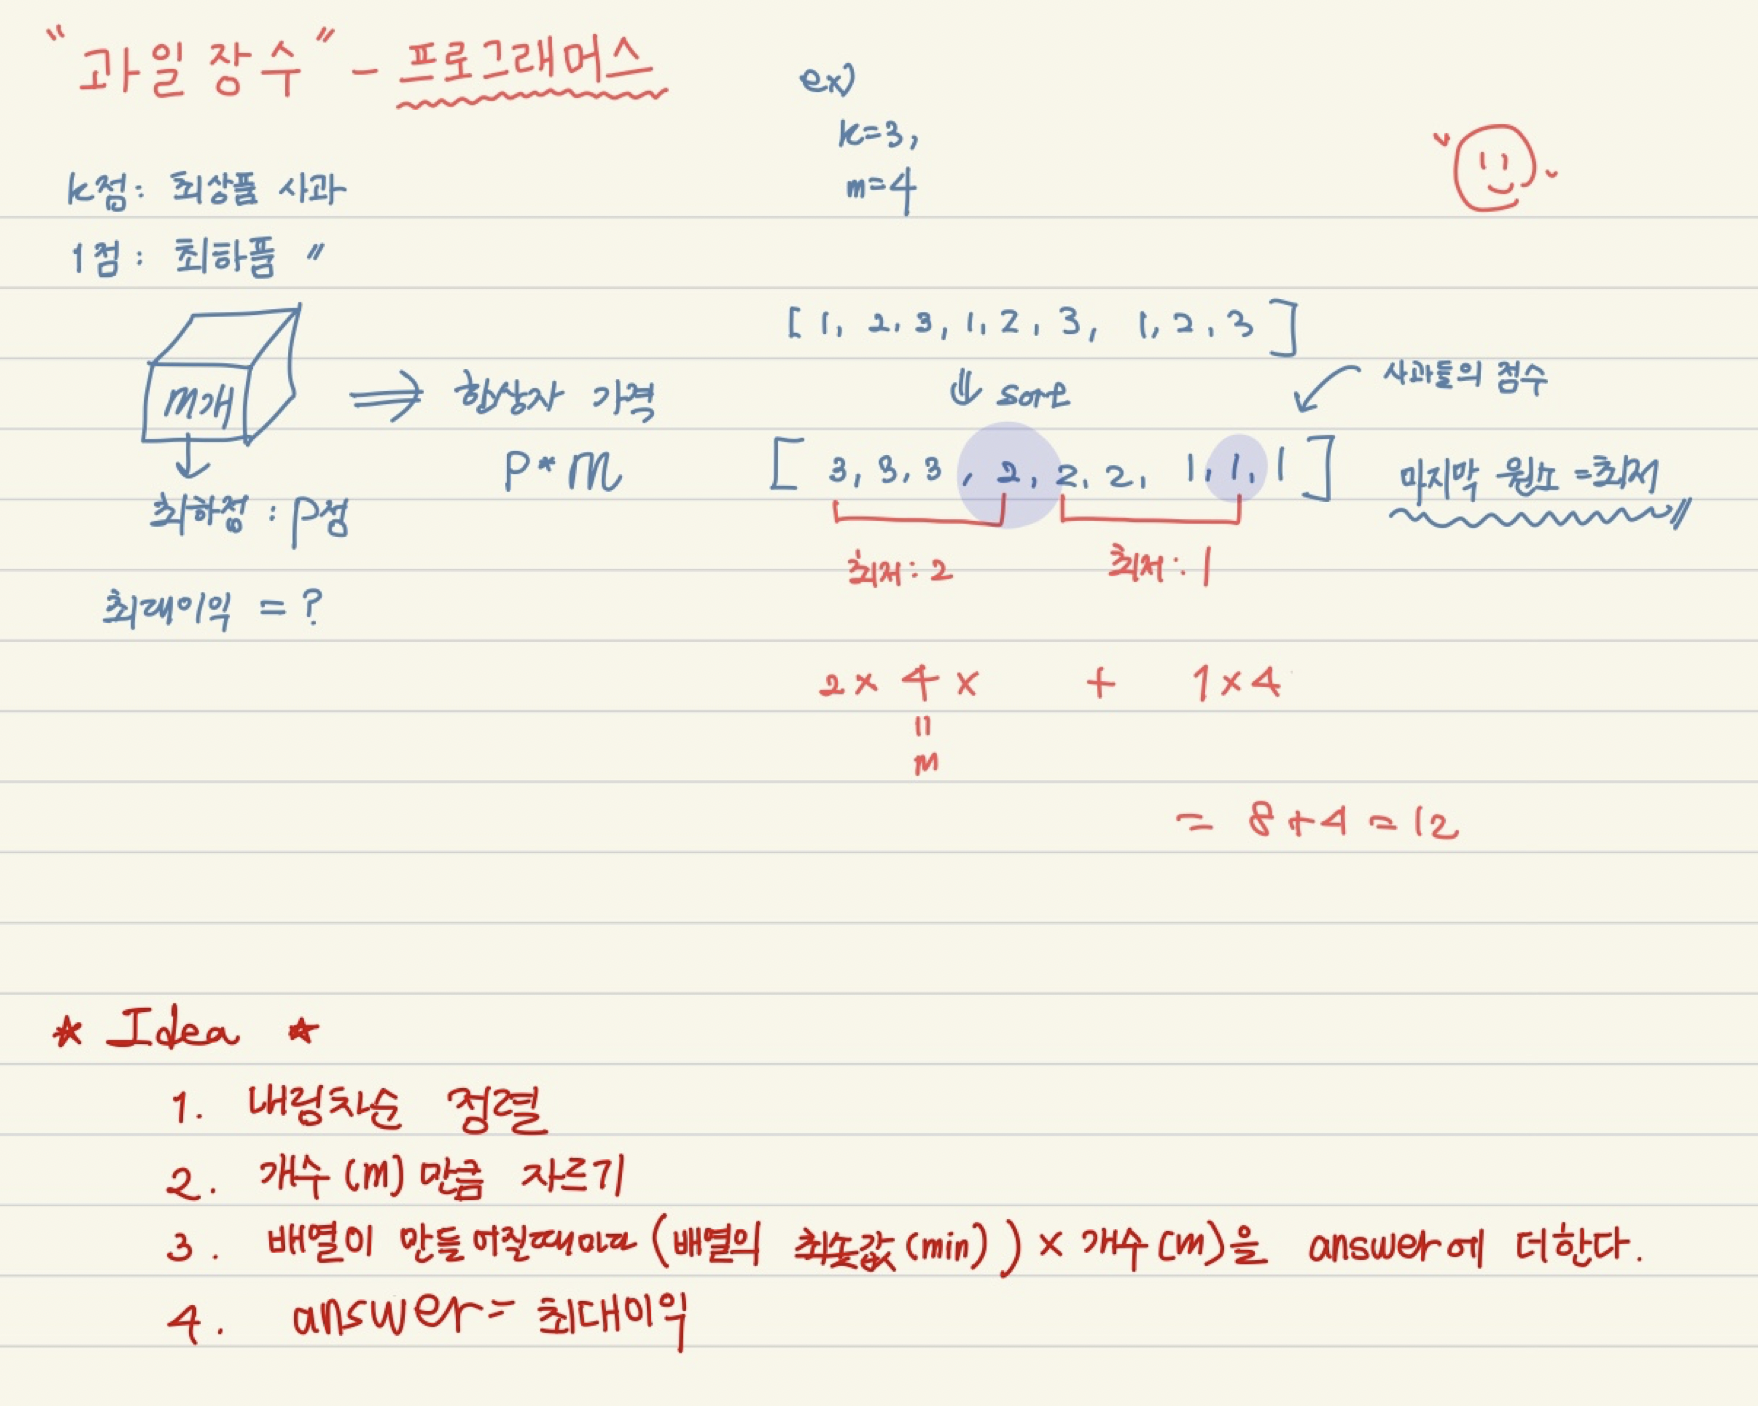 "과일 장수" - 프로그래머스
k점: 최상품 사과
1점: 최하품 〃
m개
⇒ 한상자 가격
p * m
최하점 : p점
최대이익 = ?
ex)
k=3,
m=4
[ 1, 2, 3, 1, 2, 3, 1, 2, 3 ]
⇓ sort
사과들의 점수
[ 3, 3, 3, 2, 2, 2, 1, 1, 1 ]
마지막 원소 = 최저
최저 : 2
최저 : 1
2 × 4 × + 1 × 4
=
m
= 8 + 4 = 12
★ Idea ★
1. 내림차순 정렬
2. 개수 (m) 만큼 자르기
3. 배열이 만들어질때마다 (배열의 최솟값 (min)) × 개수 (m)을 answer에 더한다.
4. answer = 최대이익